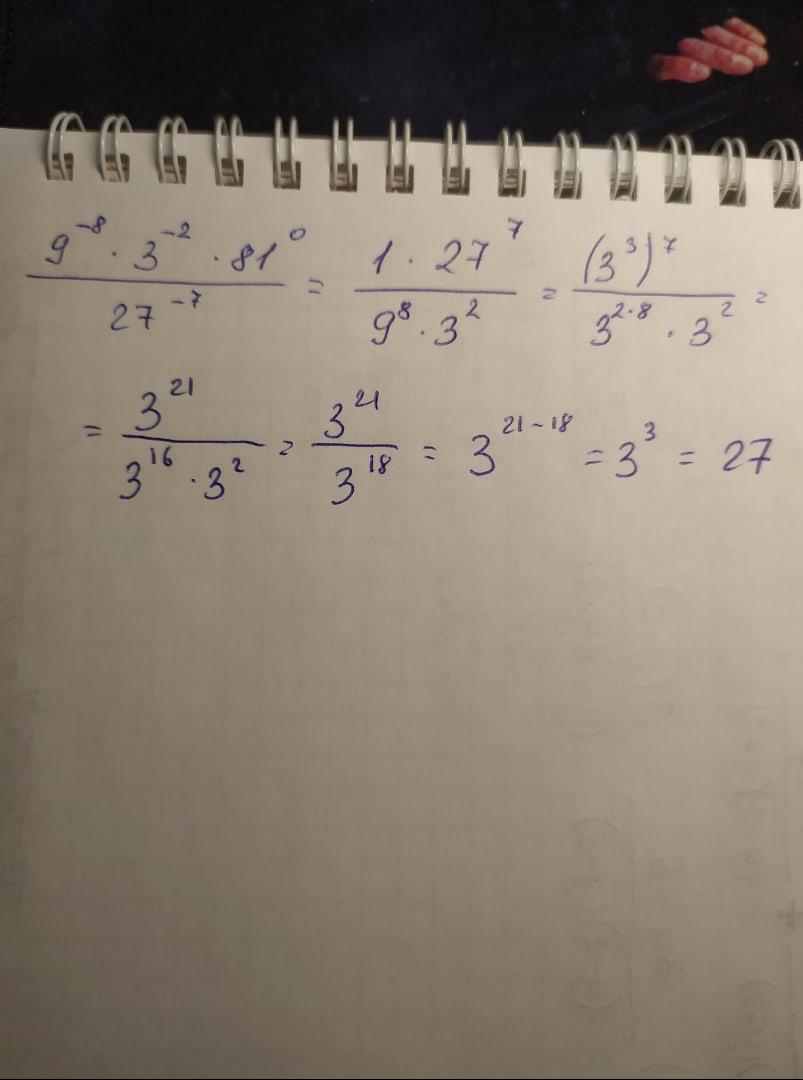 9⁻⁸ · 3⁻² · 81⁰ / 27⁻⁷ = 1 · 27⁷ / 9⁸ · 3² = (3³)⁷ / 3²·⁸ · 3² =
= 3²¹ / 3¹⁶ · 3² = 3²¹ / 3¹⁸ = 3²¹⁻¹⁸ = 3³ = 27